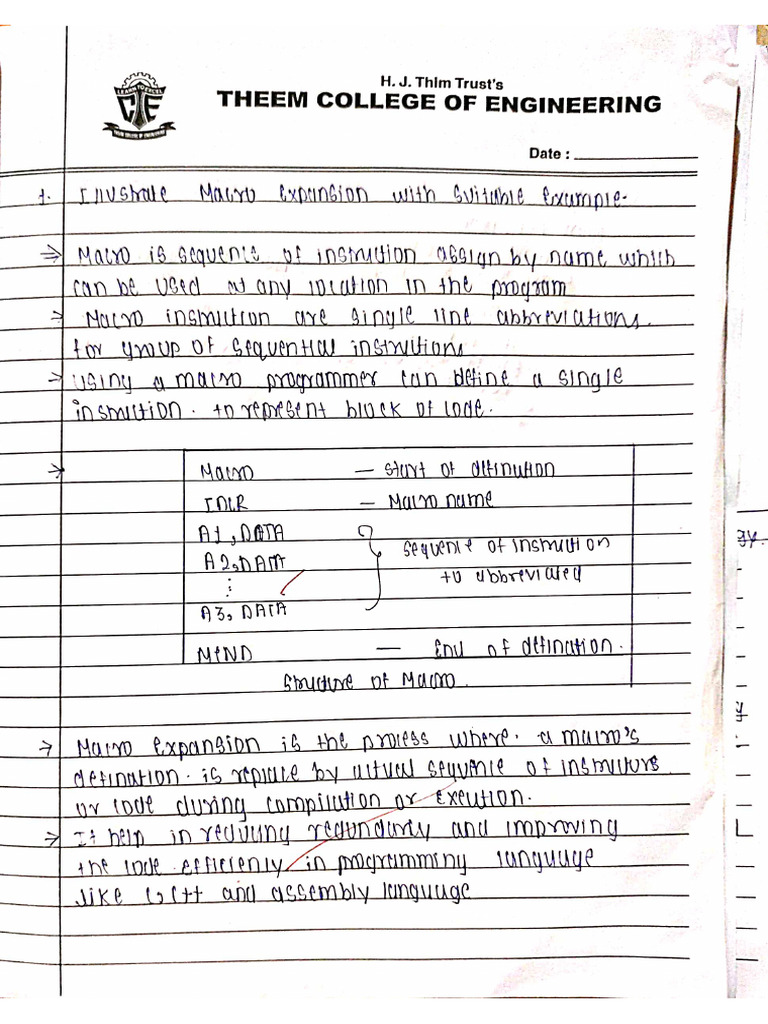 H. J. Thim Trust's
THEEM COLLEGE OF ENGINEERING
Date :
1. Illustrate Macro Expansion with Suitable Example.
⇒ Macro is sequence of instruction assign by name which
can be used at any location in the program
⇒ Macro instruction are single line abbreviations.
for group of sequential instructions
→ Using a macro programmer can define a single
instruction. to represent block of code.
→ Macro — Start of defination
INCR — Macro name
A1, DATA
A2, DATA
sequence of instruction
to abbreviated
⋮
A3, DATA
MEND — End of defination.
Structure of Macro.
→ Macro expansion is the process where. a macro's
defination. is replace by actual sequence of instructions
or code during compilation or execution.
⇒ It help in reducing redundancy and improving
the code efficiency in programming language
like C, C++ and assembly language